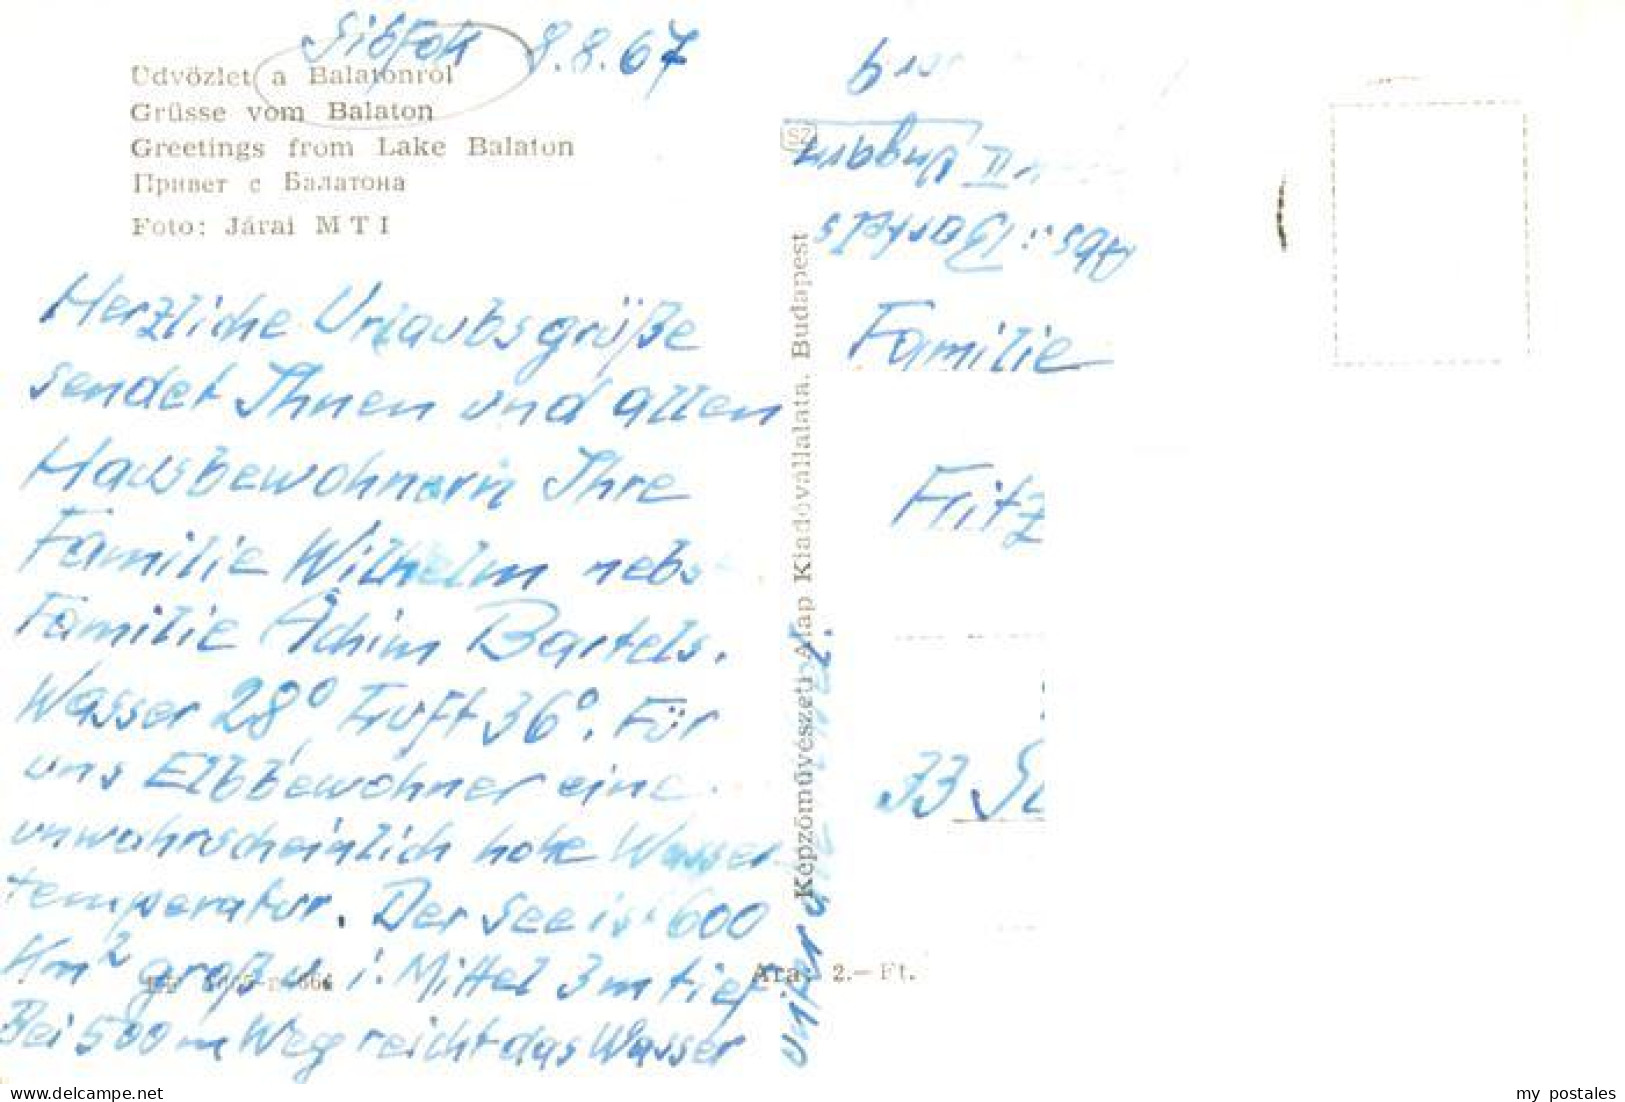 Siófok 8.8.67
Üdvözlet a Balatonról
Grüsse vom Balaton
Greetings from Lake Balaton
Привет с Балатона
Foto: Járai MTI
Herzliche Urlaubsgrüße
sendet Ihnen und allen
Hausbewohnern Ihre
Familie Wilhelm nebst
Familie Achim Bartels.
Wasser 28° Luft 36°. Für
uns Elbbewohner eine
unwahrscheinlich hohe Wasser
temperatur. Der See ist 600
Km² groß u. i. Mittel 3 m tief
Bei 500 m Weg reicht das Wasser
unter
Képzőművészeti Alap Kiadóvállalata, Budapest
SZ
Abs.: Bartels
II Ungarn
Familie
Fritz
33
Ára: 2.— Ft.
my postales